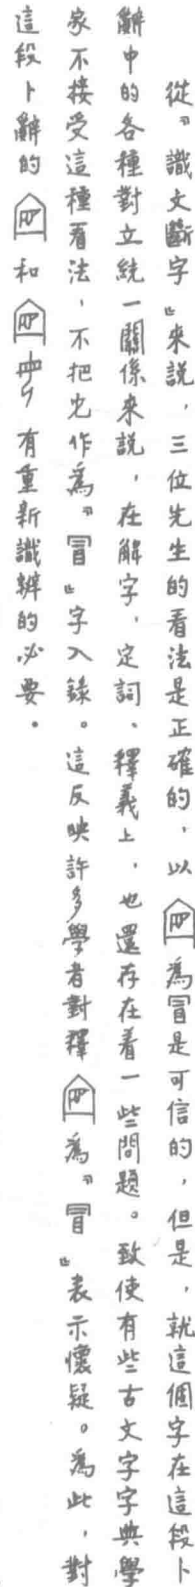 從『識文斷字』來説，三位先生的看法是正確的，以為冒是可信的，但是，就這個字在這段卜
辭中的各種對立統一關係來説，在解字、定詞、釋義上，也還存在着一些問題。致使有些古文字字典學
家不接受這種看法，不把它作為『冒』字入錄。這反映許多學者對釋為『冒』表示懷疑。為此，對
這段卜辭的和有重新識辨的必要。